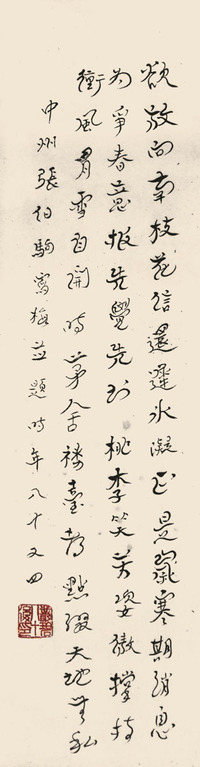 欲放向南枝花信還遲冰凝正是臘寒期消息
為爭春意報先覺先到桃李笑芳姿傲撐持
衝風冒雪自開時茅舍樓臺都點綴天地無私
中州張伯駒寫梅並題時年八十又四